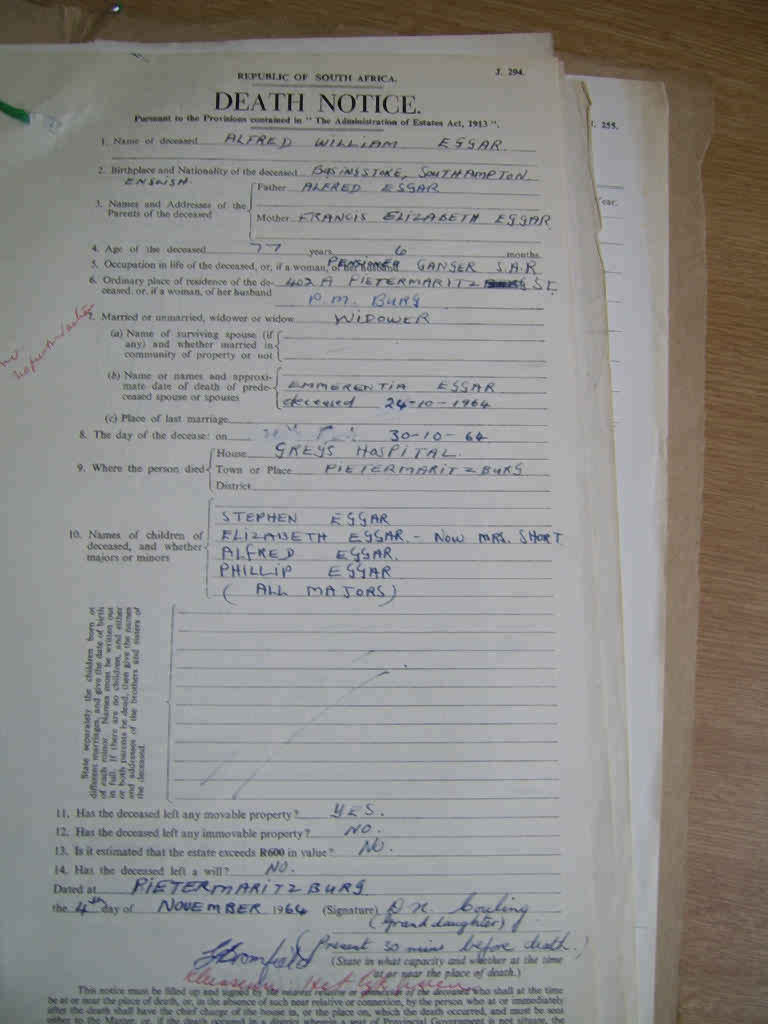 J. 294.
REPUBLIC OF SOUTH AFRICA.
DEATH NOTICE.
Pursuant to the Provisions contained in "The Administration of Estates Act, 1913".
1. Name of deceased ALFRED WILLIAM EGGAR.
2. Birthplace and Nationality of the deceased BASINGSTOKE, SOUTHAMPTON
ENGLISH.
3. Names and Addresses of the Parents of the deceased
Father ALFRED EGGAR
Mother FRANCIS ELIZABETH EGGAR
4. Age of the deceased 77 years 6 months.
5. Occupation in life of the deceased, or, if a woman, of her husband PENSIONER GANGER S.A.R
6. Ordinary place of residence of the de- 402 A PIETERMARITZ ST.
ceased, or, if a woman, of her husband P.M. BURG
7. Married or unmarried, widower or widow WIDOWER
(a) Name of surviving spouse (if
any) and whether married in
community of property or not
(b) Name or names and approxi-
mate date of death of prede- EMMERENTIA EGGAR
ceased spouse or spouses deceased 24-10-1964
(c) Place of last marriage
8. The day of the decease: on 30-10-64
9. Where the person died
House GREYS HOSPITAL.
Town or Place PIETERMARITZBURG
District
10. Names of children of
deceased, and whether
majors or minors
STEPHEN EGGAR
ELIZABETH EGGAR. - NOW MRS. SHORT
ALFRED EGGAR.
PHILLIP EGGAR
( ALL MAJORS)
State separately the children born of
different marriages, and give the date of birth
of each minor. Names must be written out
in full. If there are no children, and either
or both parents be dead, then give the names
and addresses of the brothers and sisters of
the deceased.
11. Has the deceased left any movable property? YES.
12. Has the deceased left any immovable property? NO.
13. Is it estimated that the estate exceeds R600 in value? NO.
14. Has the deceased left a will? NO.
Dated at PIETERMARITZBURG
the 4th day of NOVEMBER 1964 (Signature)
(Grand daughter)
(Present 30 mins before death.)
(State in what capacity and whether at the time
or near the place of death.)
This notice must be filled up and signed by the nearest relative or connection of the deceased who shall at the time
be at or near the place of death, or, in the absence of such near relative or connection, by the person who at or immediately
after the death shall have the chief charge of the house in, or the place on, which the death occurred, and must be sent
either to the Master, or, if the death occurred in a district wherein a seat of Provincial Government is not situate, the
J. 255.